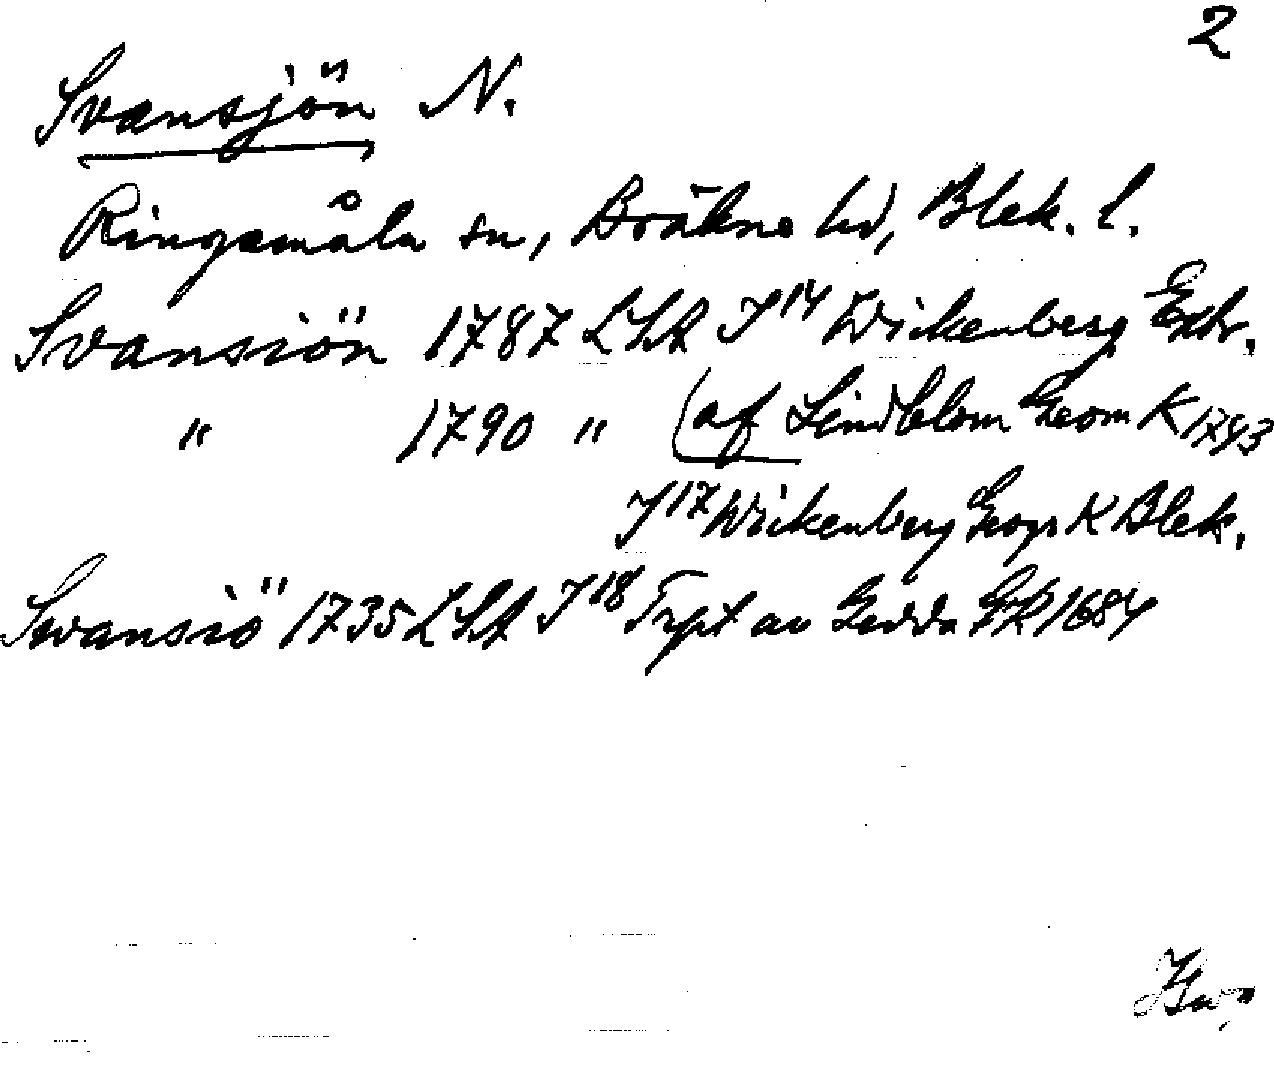 2
Svansjön N.
Ringamåla sn, Bräkne hd, Blek. l.
Svansiön 1787 LSA I14 Wickenberg Extr.
" 1790 " (af Lindblom Geom K 1793
I17 Wickenberg Geogr K Blek.
Swansiö 1735 LSA I18 Trykt av Gedda GK 1684